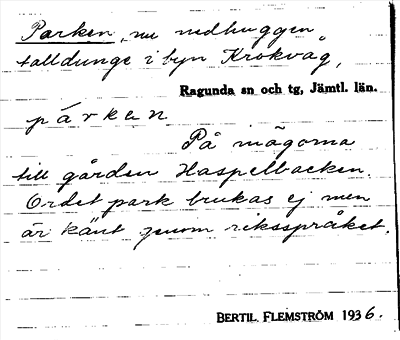 Parken, nu nedhuggen
talldunge i byn Krokvåg,
Ragunda sn och tg, Jämtl. län.
parken
På mägorna
till gården Haspelbacken.
Ordet park brukas ej men
är känt genom riksspråket.
BERTIL FLEMSTRÖM 1936.